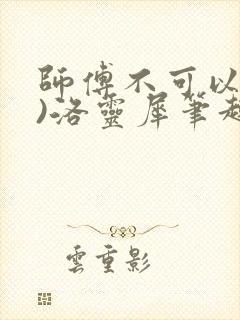 師傅不可以
)洛靈犀筆趣
雲重影